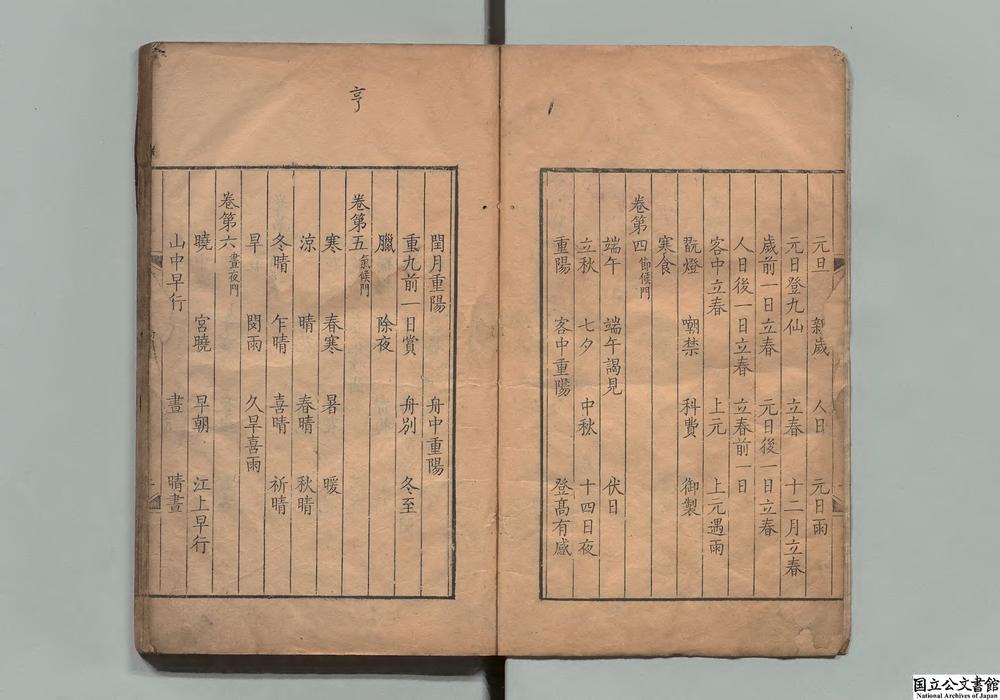 元旦 新歲 人日 元日雨
元日登九仙 立春 十二月立春
歲前一日立春 元日後一日立春
人日後一日立春 立春前一日
客中立春 上元 上元遇雨
翫燈 嘲禁 科費 御製
寒食
卷第四 節候門
端午 端午謁見 伏日
立秋 七夕 中秋 十四日夜
重陽 客中重陽 登高有感
亨
閏月重陽 舟中重陽
重九前一日賞 舟別 冬至
臘 除夜
卷第五 氣候門
寒 春寒 暑 暖
涼 晴 春晴 秋晴
冬晴 乍晴 喜晴 祈晴
旱 閔雨 久旱喜雨
卷第六 晝夜門
曉 宮曉 早朝 江上早行
山中早行 晝 晴晝
国立公文書館
National Archives of Japan